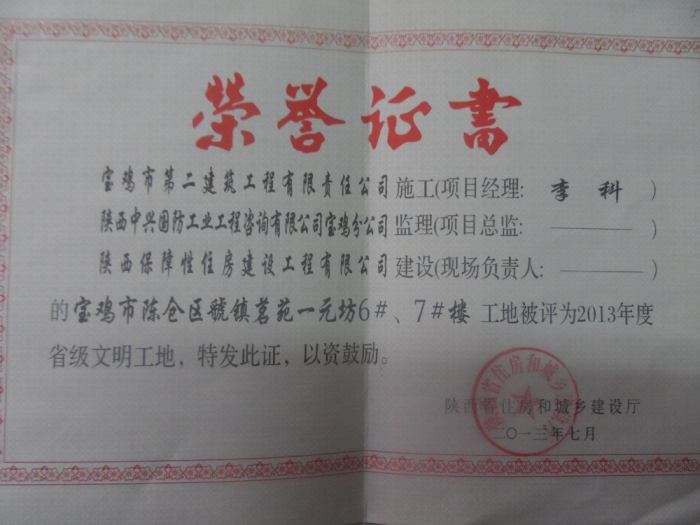 荣誉证书
宝鸡市第二建筑工程有限责任公司施工(项目经理: 李科)
陕西中兴国防工业工程咨询有限公司宝鸡分公司监理(项目总监: ———)
陕西保障性住房建设工程有限公司建设(现场负责人: ———)
的宝鸡市陈仓区虢镇茗苑一元坊6#、7#楼 工地被评为2013年度
省级文明工地，特发此证，以资鼓励。
陕西省住房和城乡建设厅
二〇一三年七月